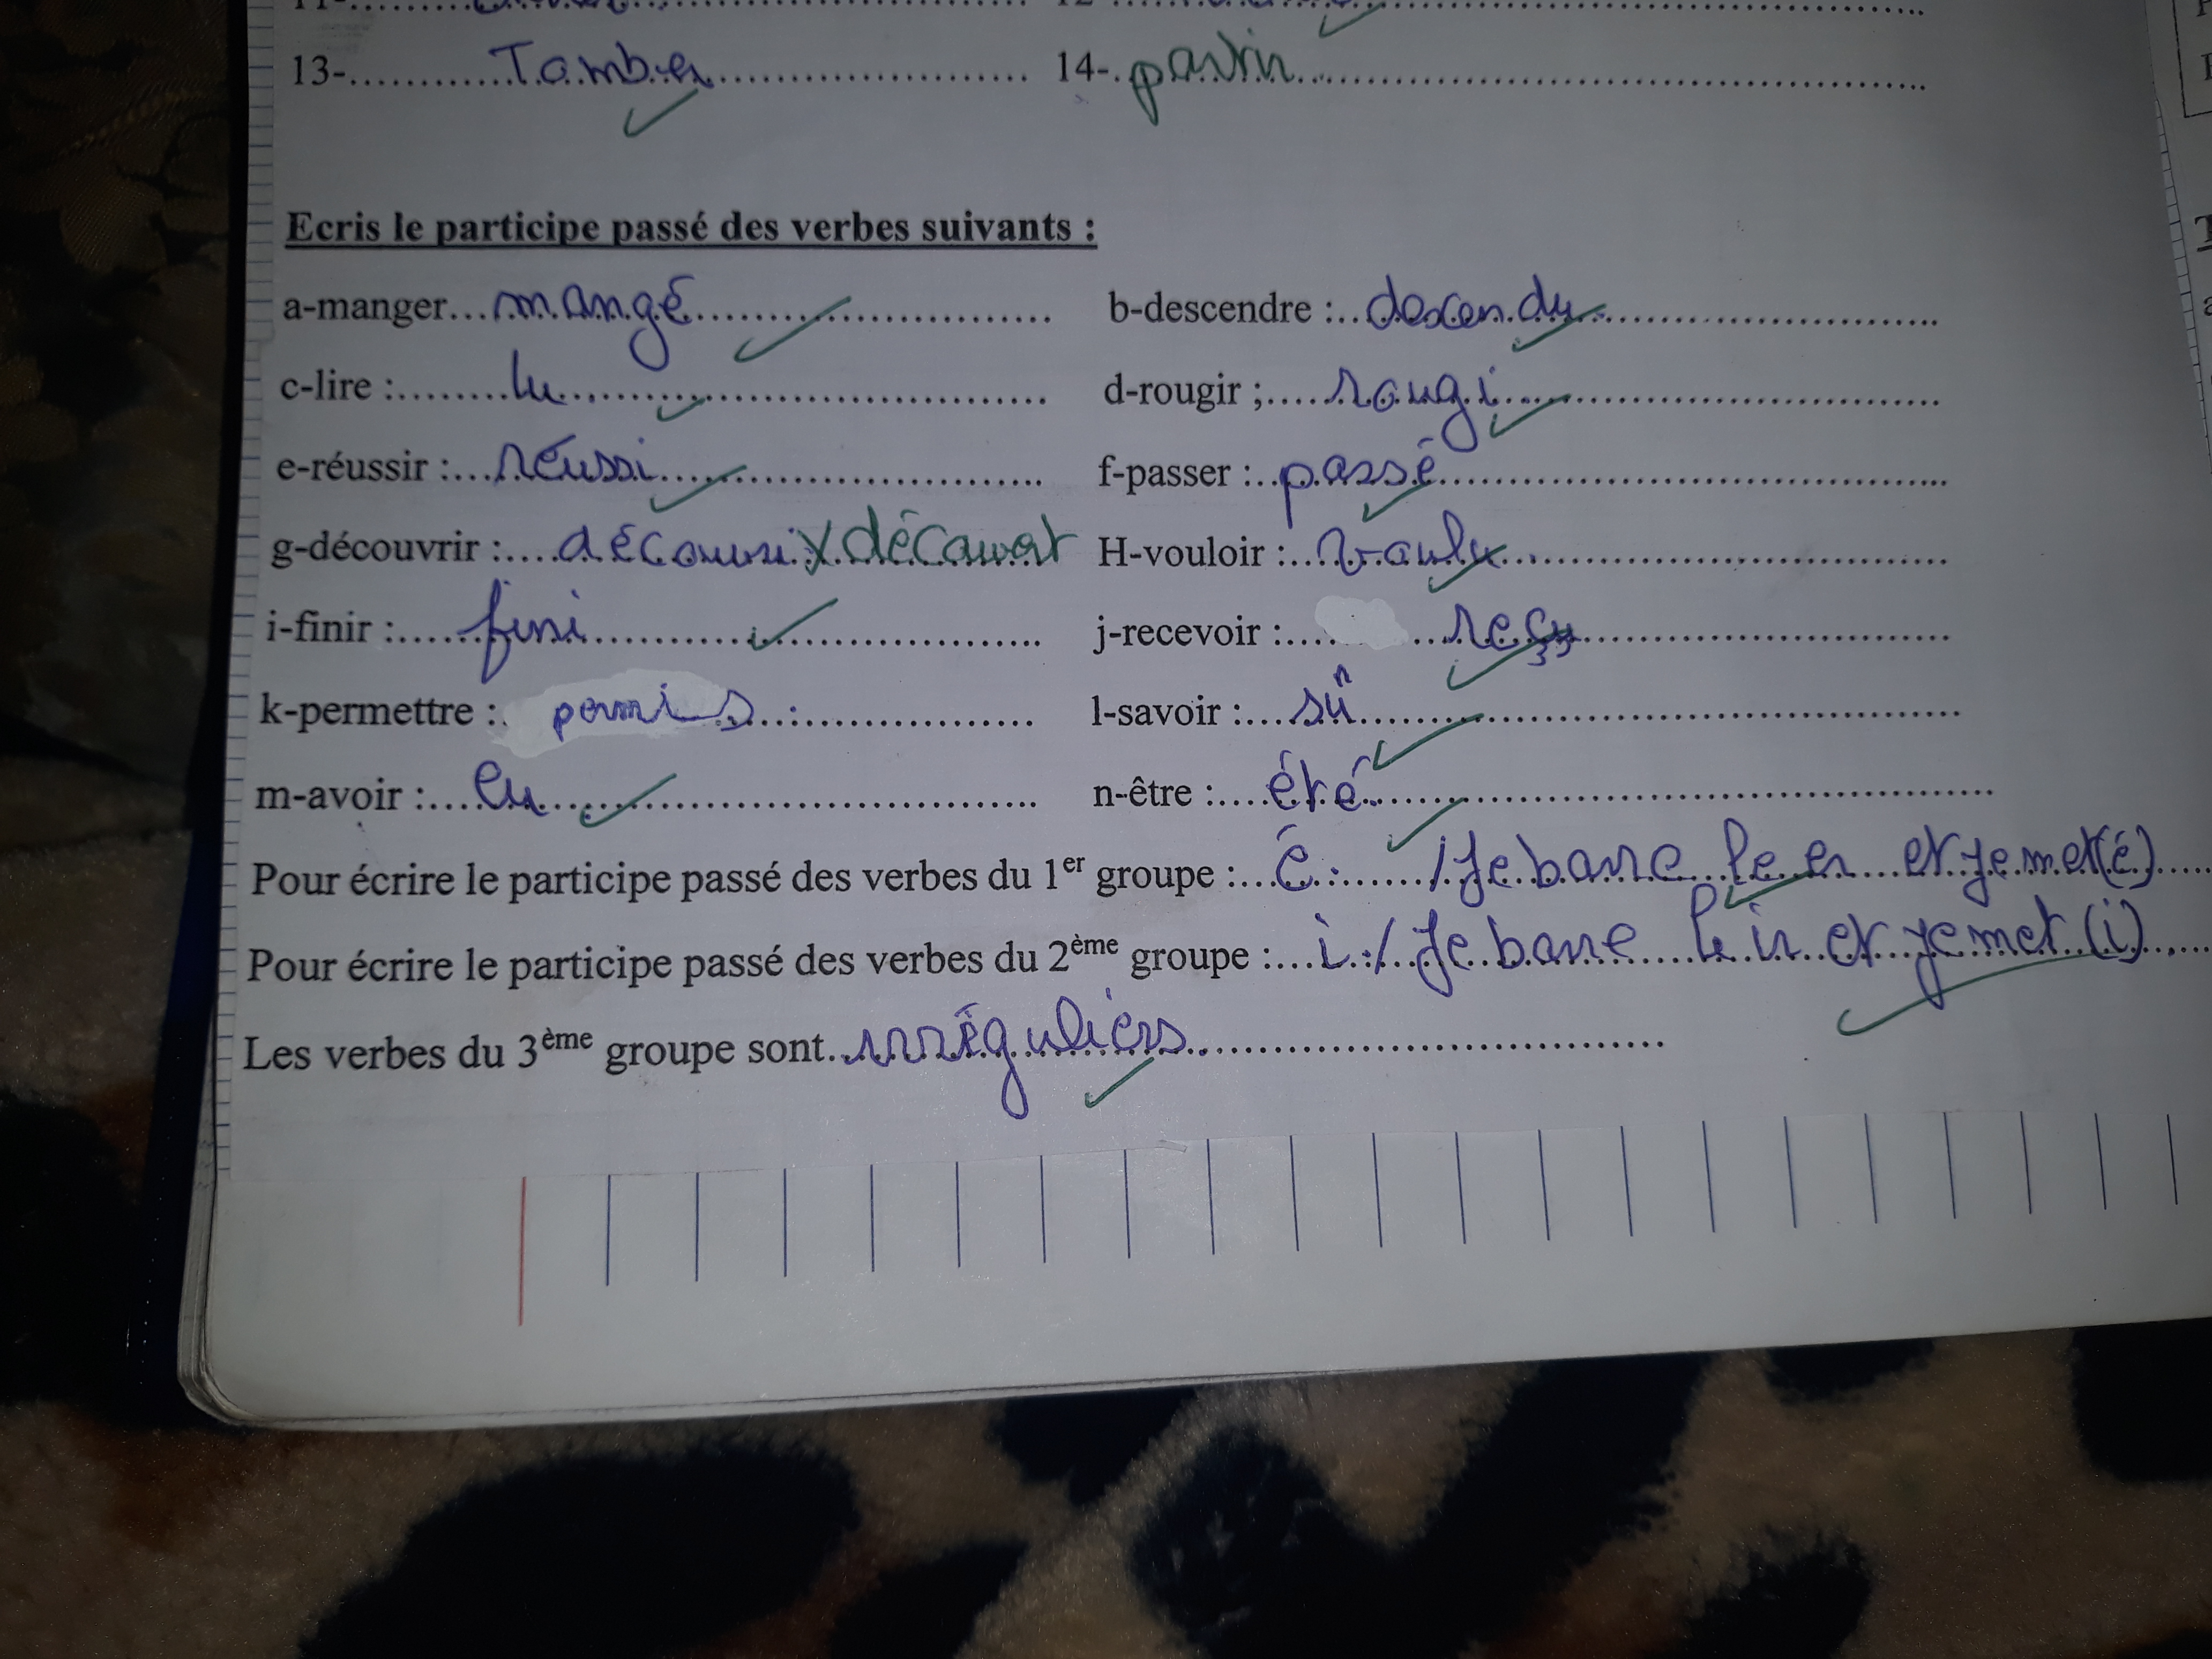 13-............Tomber.............................. 14-.partir.............................
Ecris le participe passé des verbes suivants :
a-manger...mangé.............................. b-descendre :..descendu..............................
c-lire :........lu.............................. d-rougir ;....rougi..............................
e-réussir :...réussi.............................. f-passer :..passé..............................
g-découvrir :....découvri X découvert H-vouloir :...voulu..............................
i-finir :.....fini.............................. j-recevoir :.... ...reçu..............................
k-permettre :. permis .............................. l-savoir :....sû..............................
m-avoir :....eu.............................. n-être :....été..............................
Pour écrire le participe passé des verbes du 1er groupe :...é....../Je barre le er et je met(é).....
Pour écrire le participe passé des verbes du 2ème groupe :...i./.Je barre le ir et je met (i).....
Les verbes du 3ème groupe sont..irréguliers..............................